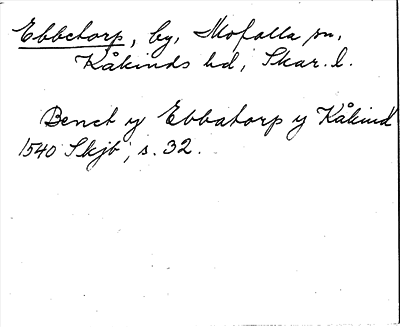 Ebbetorp, by, Mofalla sn,
Kåkinds hd, Skar. l.
Benct y Ebbatorp y Kåkind
1540 Skjb, s. 32.